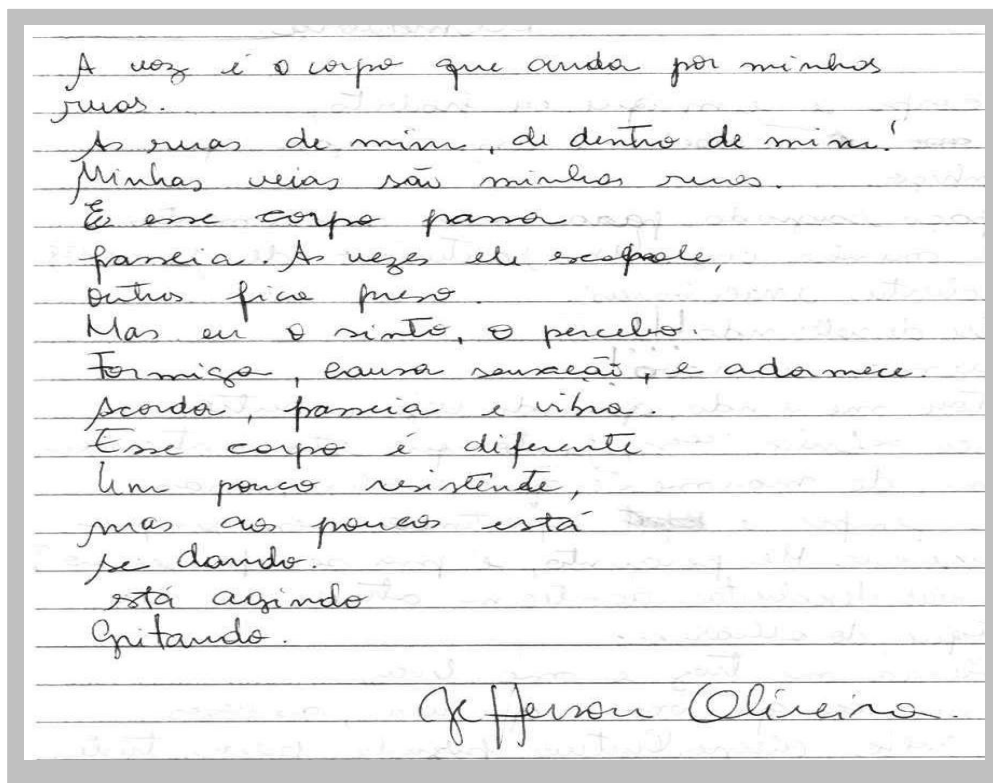 A voz é o corpo que anda por minhas
ruas.
As ruas de mim, de dentro de mim!
Minhas veias são minhas ruas.
E esse corpo passa
passeia. As vezes ele escapole,
outros fica preso.
Mas eu o sinto, o percebo.
Formiga, causa sensação, e adormece.
Acorda, passeia e vibra.
Esse corpo é diferente
Um pouco resistente,
mas aos poucos está
se dando.
está agindo
Gritando.
Jefferson Oliveira.